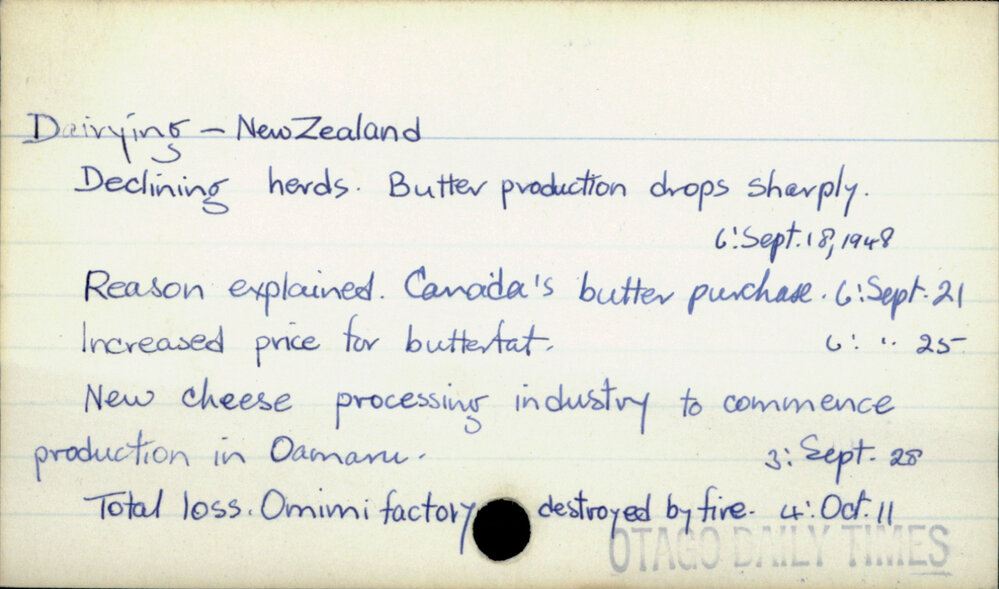 Dairying – New Zealand
Declining herds. Butter production drops sharply.
6: Sept. 18, 1948
Reason explained. Canada's butter purchase. 6: Sept. 21
Increased price for butterfat. 6: " 25
New cheese processing industry to commence
production in Oamaru. 3: Sept. 28
Total loss. Omimi factory destroyed by fire. 4: Oct. 11
OTAGO DAILY TIMES